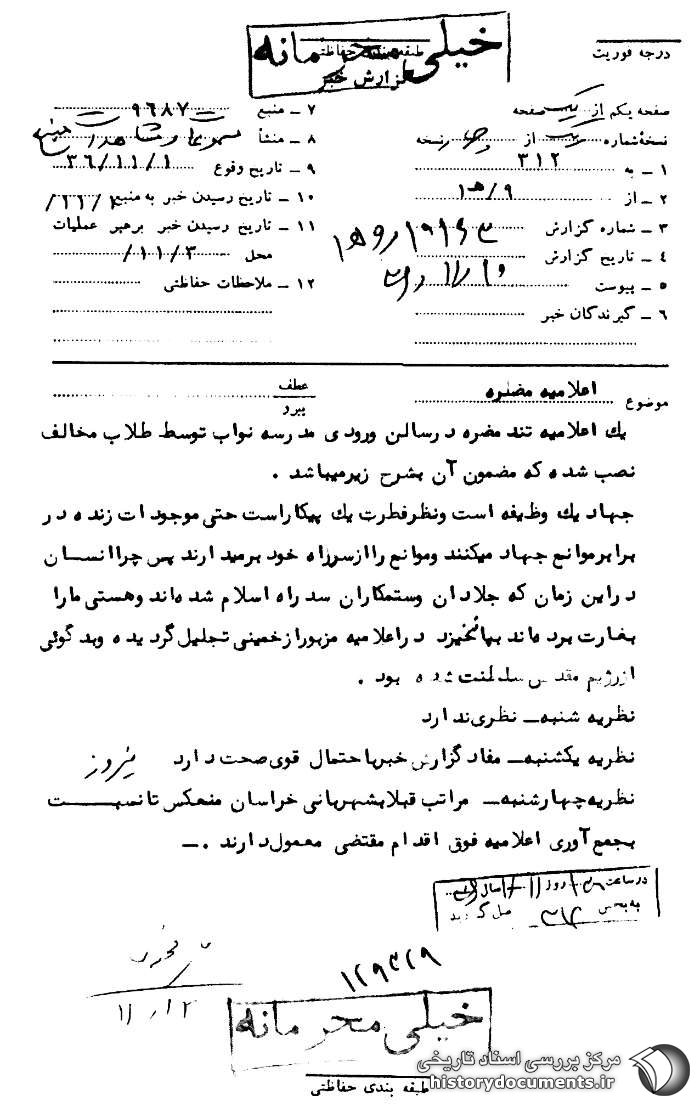 طبقه بندی حفاظتی
خیلی محرمانه
گزارش خبر
درجه فوریت
صفحه یکم از یک صفحه
نسخه شماره از نسخه
۱ ـ به ۳۱۲
۲ ـ از ۹/ه‍ ۱
۳ ـ شماره گزارش
۴ ـ تاریخ گزارش
۵ ـ پیوست
۶ ـ گیرندگان خبر
۷ ـ منبع ۹۶۸۷
۸ ـ منشأ
۹ ـ تاریخ وقوع ۳۶/۱۱/۱
۱۰ ـ تاریخ رسیدن خبر به منبع
۱۱ ـ تاریخ رسیدن خبر برهبر عملیات
محل ۱۱/۳/
۱۲ ـ ملاحظات حفاظتی
موضوع اعلامیه مضره
عطف
پیرو
یك اعلامیه تند مضره در سالن ورودی مدرسه نواب توسط طلاب مخالف
نصب شده که مضمون آن بشرح زیرمیباشد .
جهاد یك وظیفه است ونظر فطرت یك پیکاراست حتی موجودات زنده در
برابر موانع جهاد میکنند وموانع را از سر راه خود برمیدارند پس چرا انسان
در این زمان که جلادان وستمکاران سد راه اسلام شده اند وهستی ما را
بغارت برده اند بپانخیزد در اعلامیه مزبور از خمینی تجلیل گردیده وبد گوئی
از رژیم مقدس سلطنت شده بود .
نظریه شنبه ـ نظری ندارد
نظریه یکشنبه ـ مفاد گزارش خبر با احتمال قوی صحت دارد
نظریه چهارشنبه ـ مراتب قبلا بشهربانی خراسان منعکس تا نسبت
بجمع آوری اعلامیه فوق اقدام مقتضی معمول دارند . ـ
در ساعت روز سال
به بخش ۳۱۲
۱۲۹۳۲۹
خیلی محرمانه
طبقه بندی حفاظتی
مرکز بررسی اسناد تاریخی
historydocuments.ir